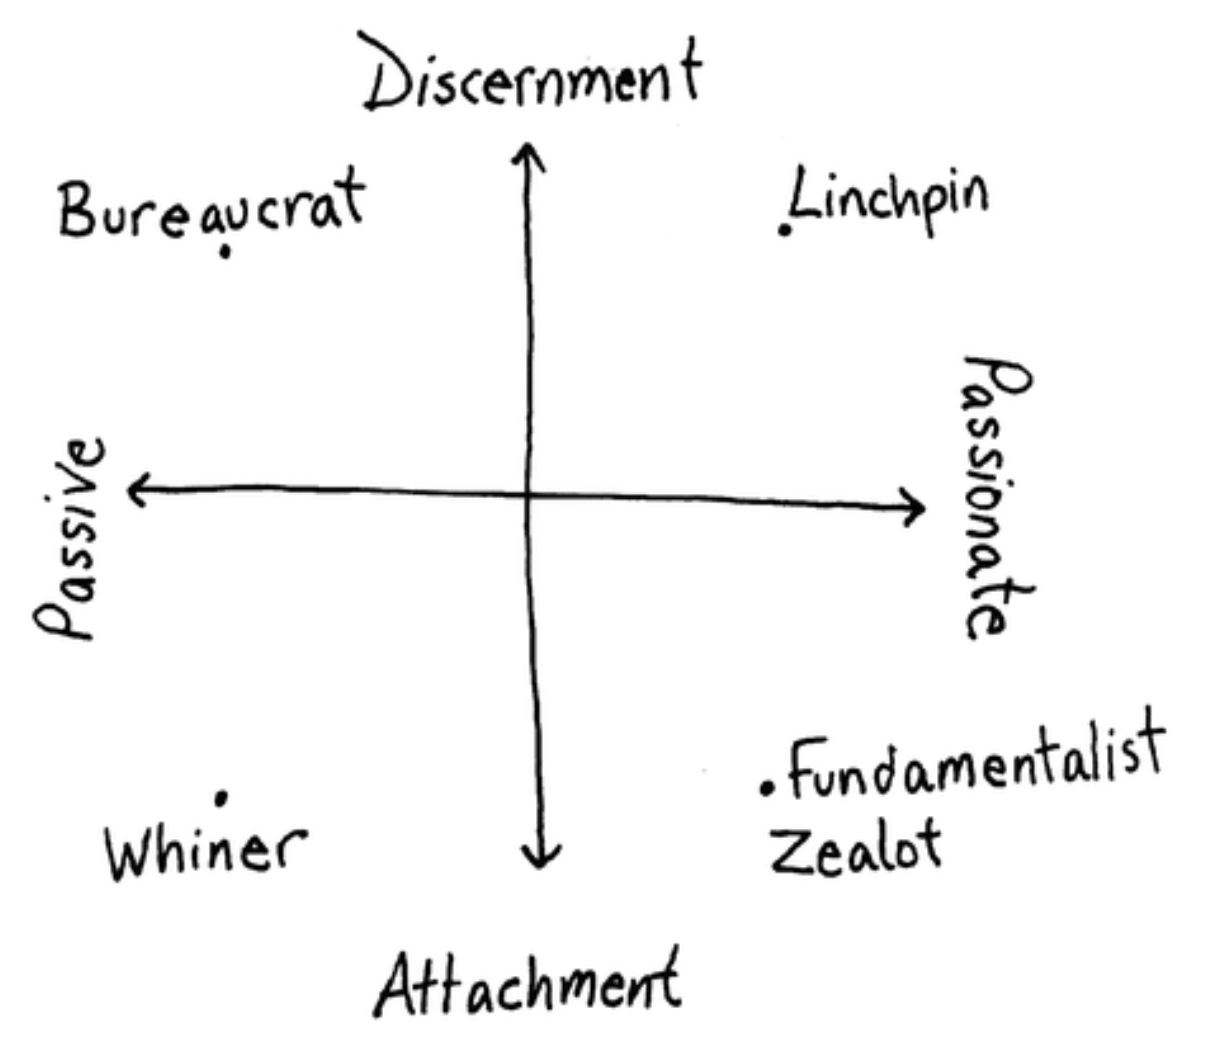 Discernment
Bureaucrat
Linchpin
Passive
Passionate
Fundamentalist
Zealot
Whiner
Attachment